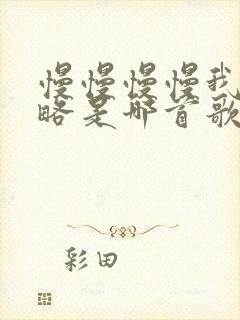 慢慢慢慢我
略是哪首歌
彩田